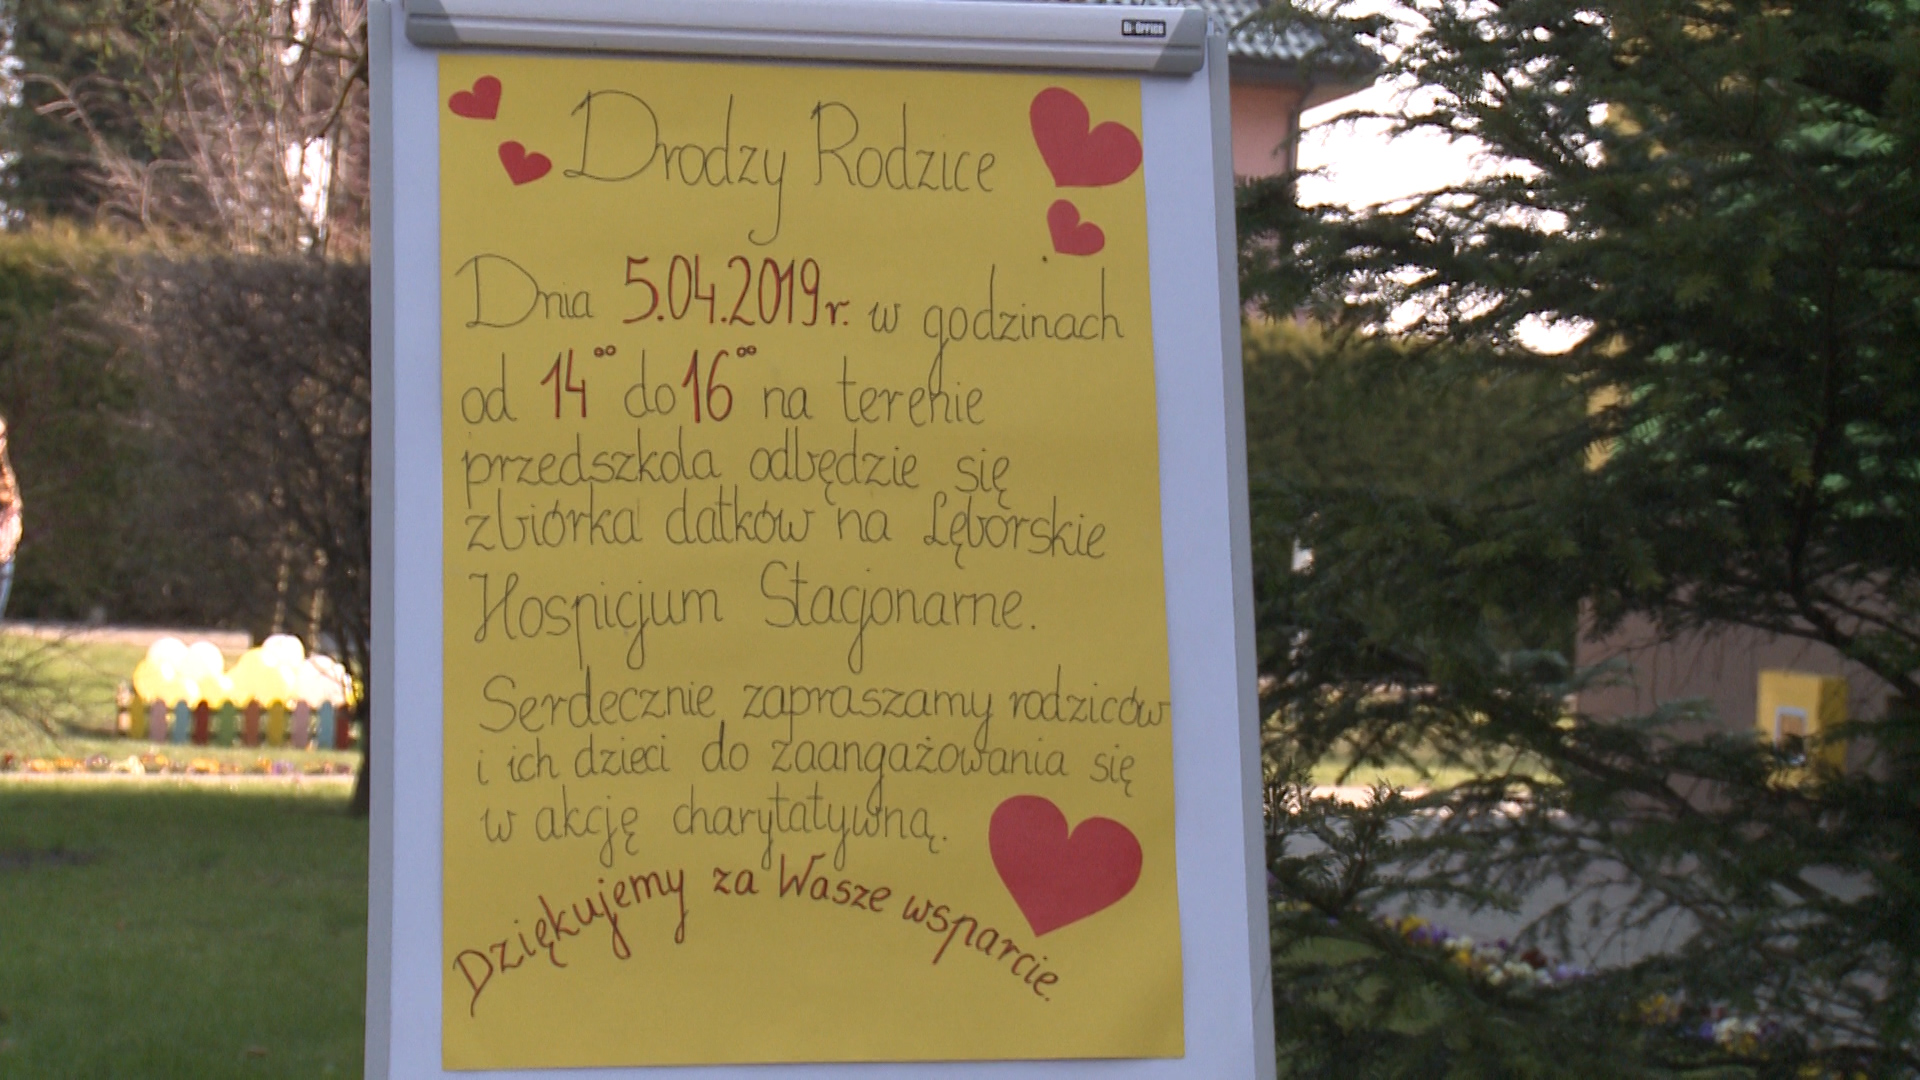 Bi-Office
Drodzy Rodzice
Dnia 5.04.2019r. w godzinach
od 14°° do 16°° na terenie
przedszkola odbędzie się
zbiórka datków na Lęborskie
Hospicjum Stacjonarne.
Serdecznie zapraszamy rodziców
i ich dzieci do zaangażowania się
w akcję charytatywną.
Dziękujemy za Wasze wsparcie.